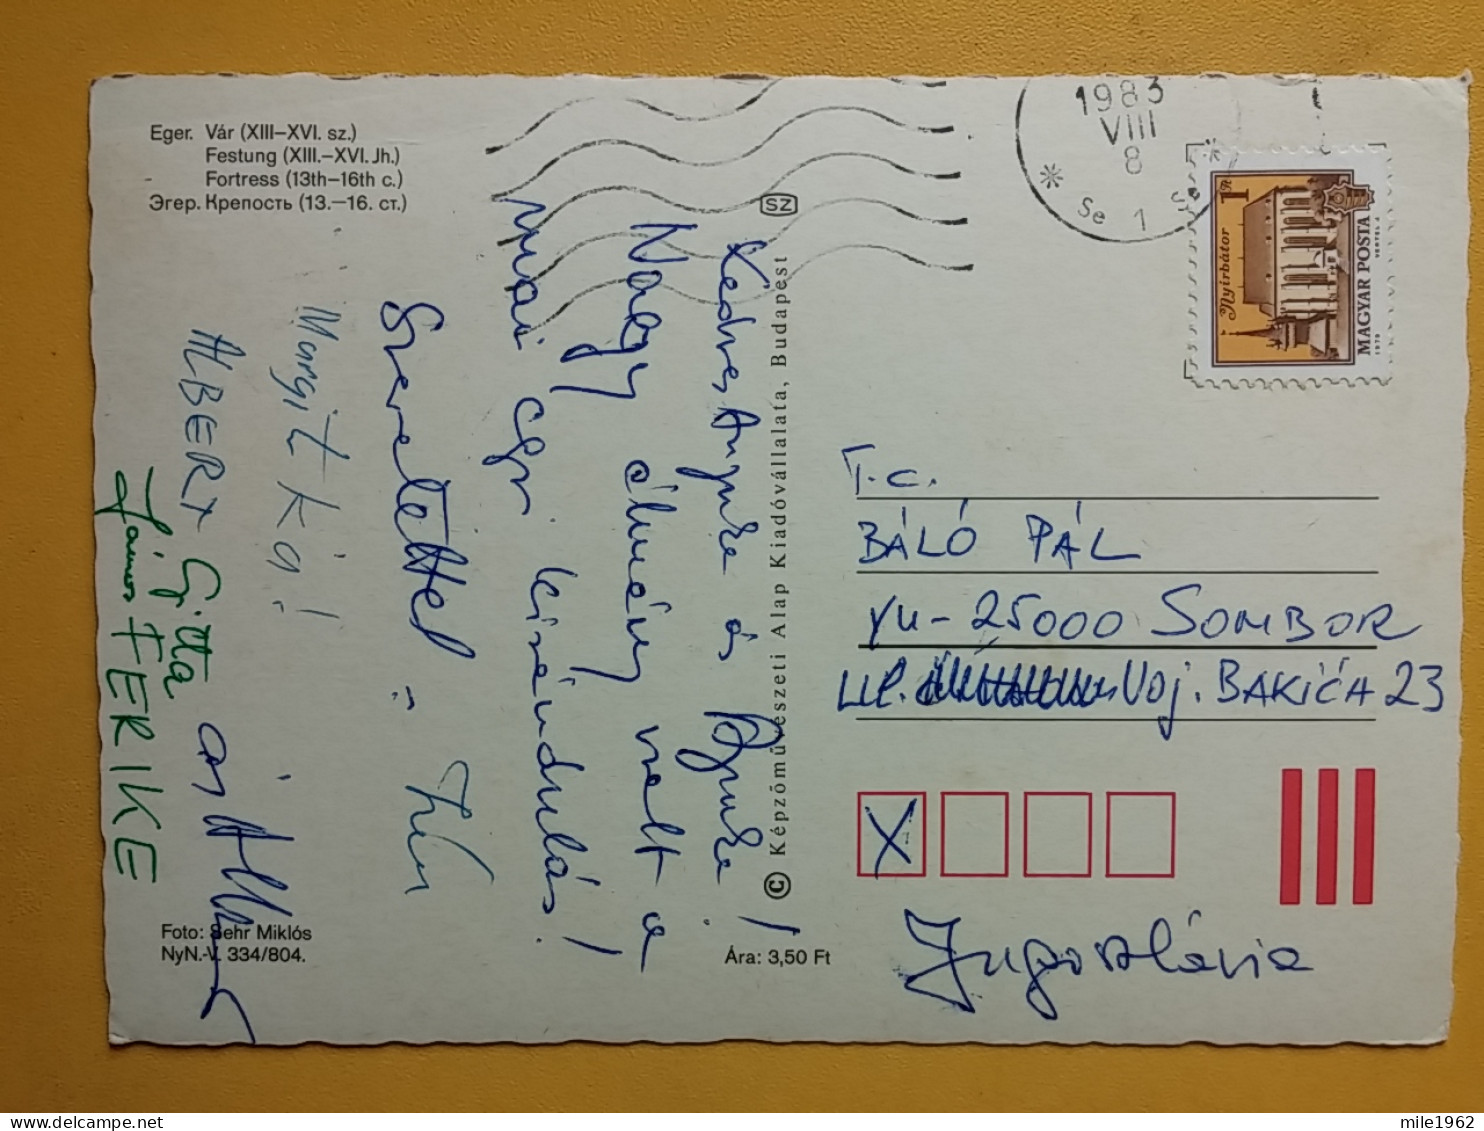 Eger. Vár (XIII–XVI. sz.)
Festung (XIII.–XVI. Jh.)
Fortress (13th–16th c.)
Эгер. Крепость (13.–16. ст.)
SZ
1983
VIII
8
Se 1
1 Ft
Nyírbátor
MAGYAR POSTA
1979
VERTEL J.
Kedves Anyuka és Apuka!
Nagy élmény volt a
mai egri kirándulás!
Szeretettel
Margit ka!
ALBERT Gitta és
János FERIKE
© Képzőművészeti Alap Kiadóvállalata, Budapest
T.C.
BÁLÓ PÁL
YU-25000 SOMBOR
UL. Voj. BAKIĆA 23
X
Jugoszlávia
Foto: Sehr Miklós
NyN.-V. 334/804.
Ára: 3,50 Ft
mile1962